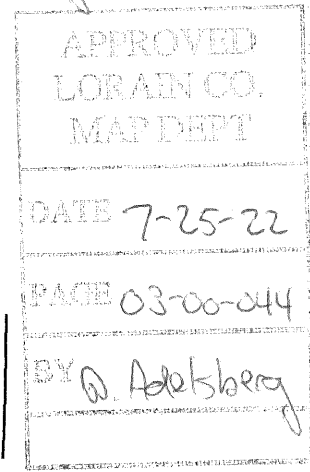 APPROVED
LORAIN CO.
MAP DEPT
DATE 7-25-22
PAGE 03-00-044
BY D. Adelsberg